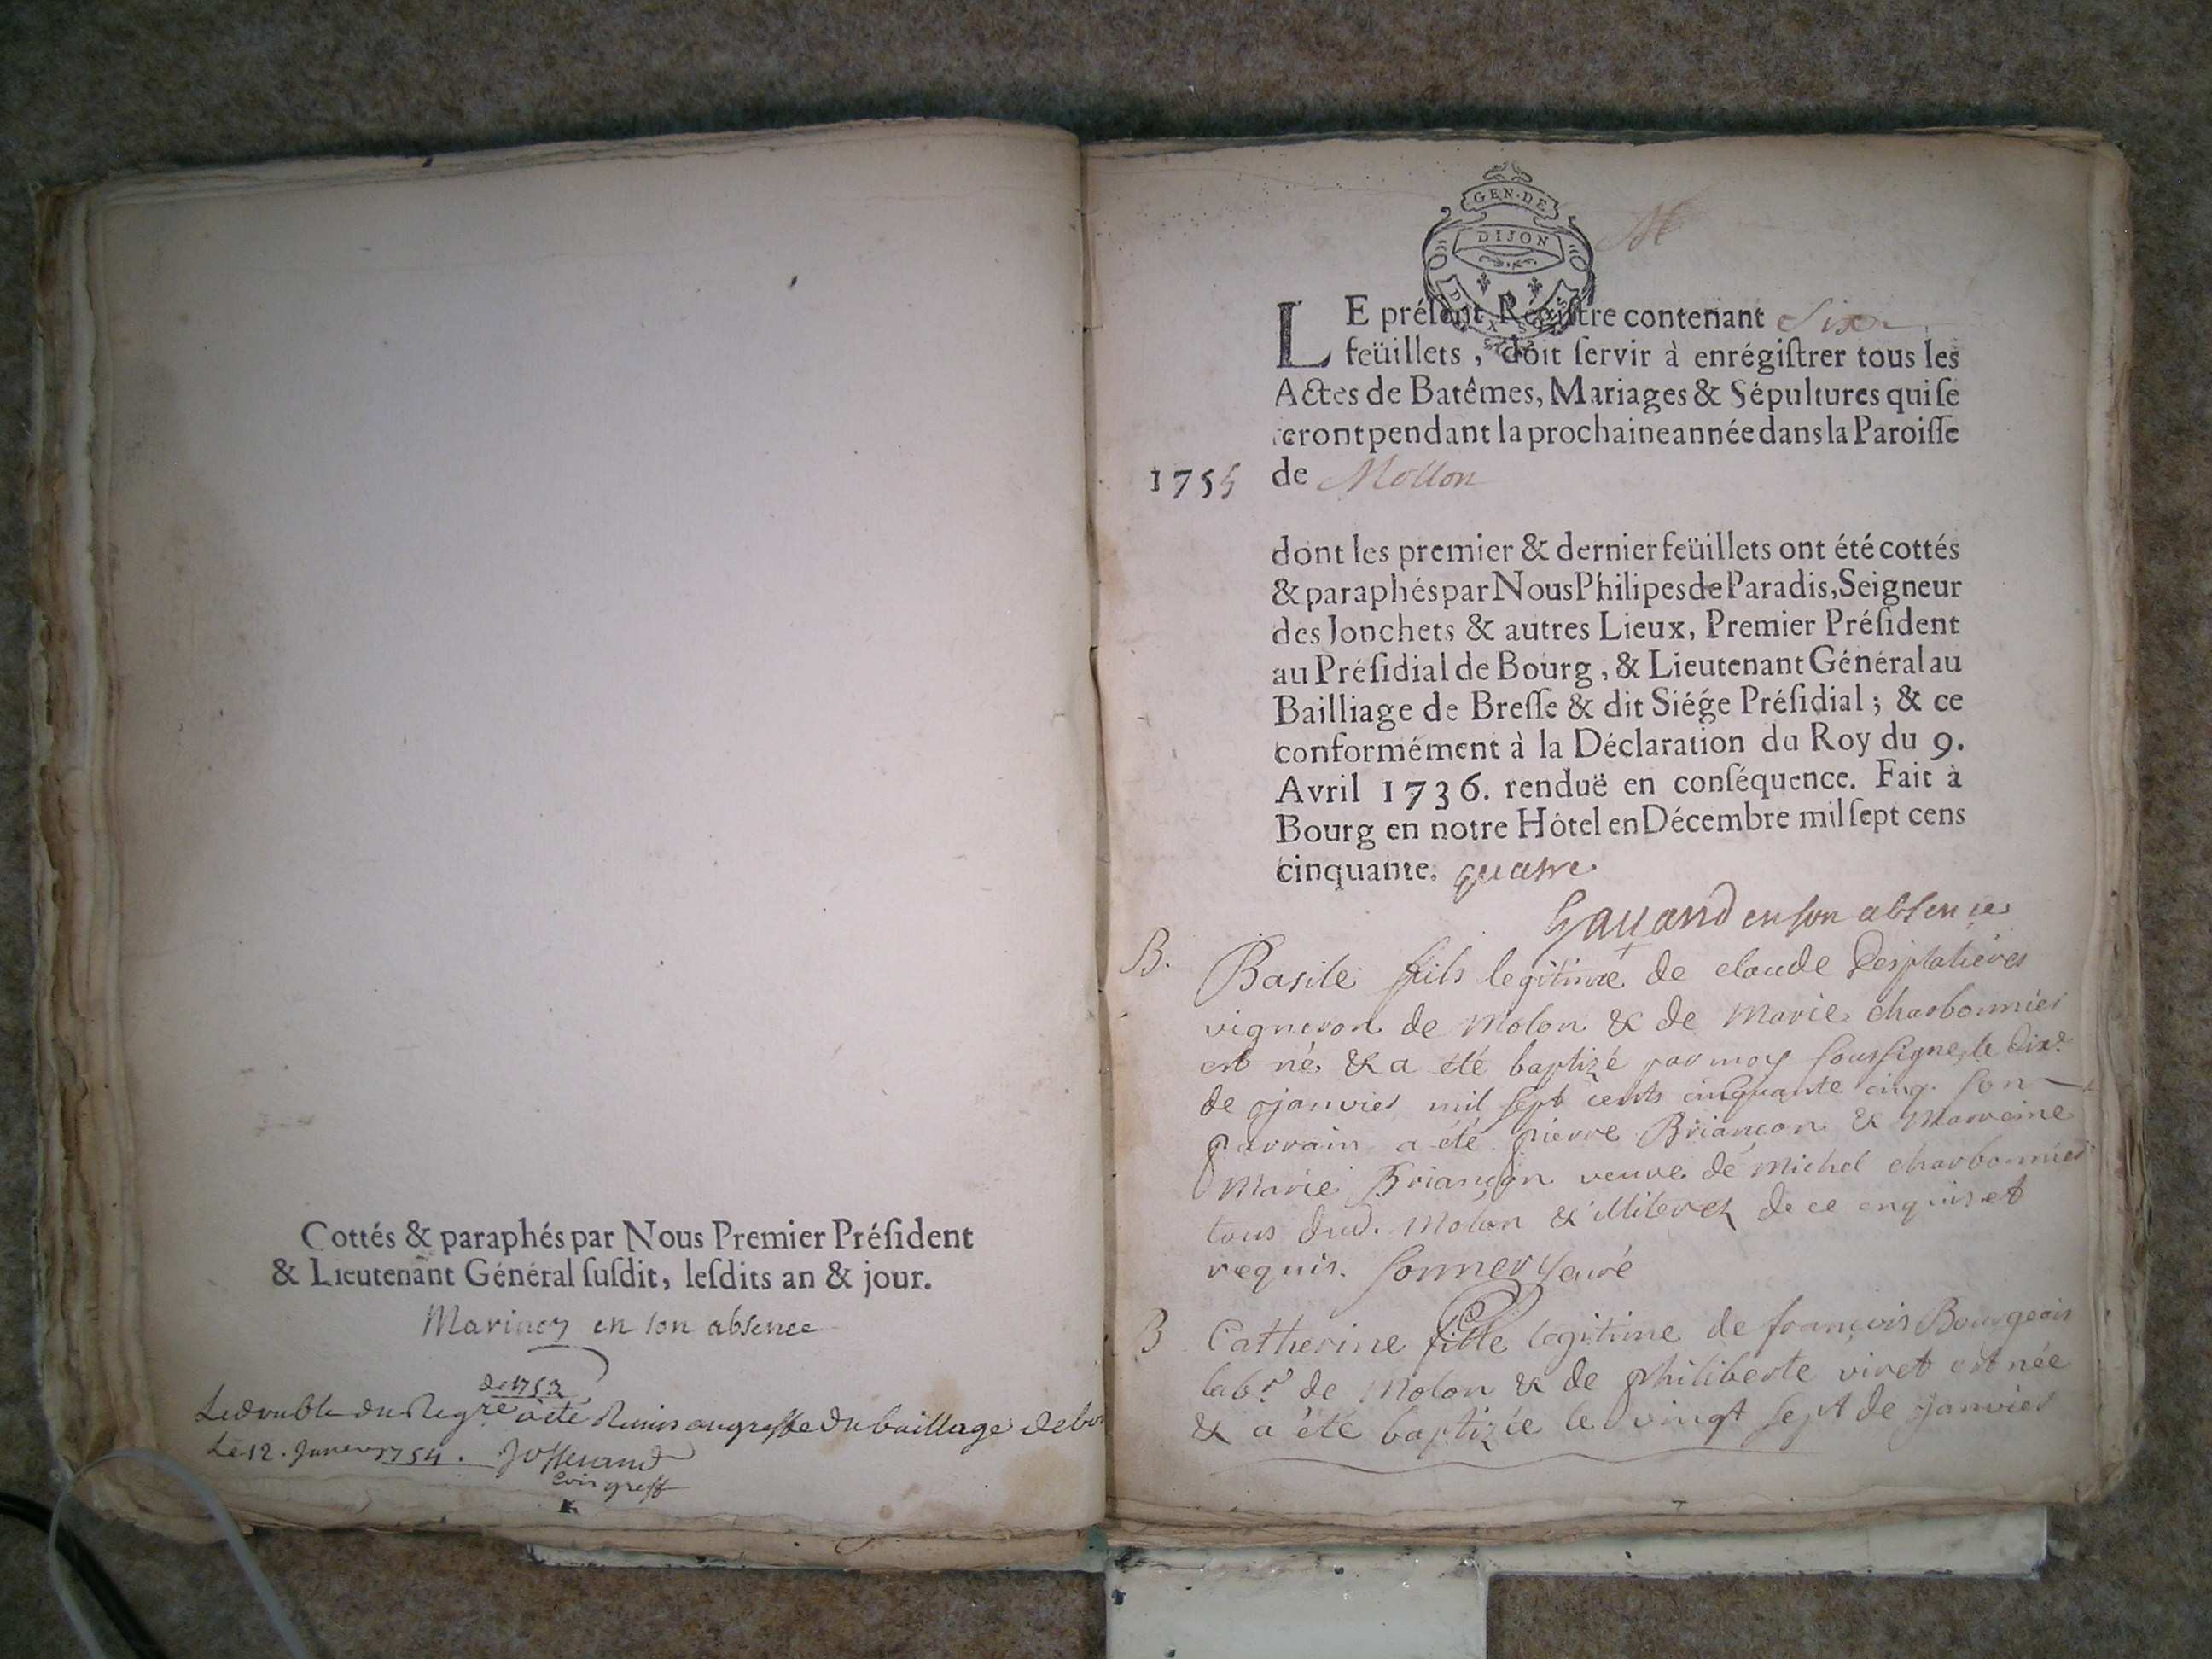 Cottés & paraphés par Nous Premier Préſident
& Lieutenant Général ſuſdit, leſdits an & jour.
en son absence
de 1753
Le double du Regre a été Remis au greffe du baillage de
Le 12. Janvier 1754.
greff
GEN·DE
DIJON
LE préſent Régiſtre contenant Six
feüillets, doit ſervir à enrégiſtrer tous les
Actes de Batêmes, Mariages & Sépultures qui ſe
feront pendant la prochaine année dans la Paroiſſe
1755 de Mollon
dont les premier & dernier feüillets ont été cottés
& paraphés par Nous Philipes de Paradis, Seigneur
des Jonchets & autres Lieux, Premier Préſident
au Préſidial de Bourg, & Lieutenant Général au
Bailliage de Breſſe & dit Siége Préſidial; & ce
conformément à la Déclaration du Roy du 9.
Avril 1736. renduë en conſéquence. Fait à
Bourg en notre Hôtel en Décembre mil ſept cens
cinquante. quatre
en son absence
B. Basile fils legitime de claude Desplatieres
vigneron de Molon & de Marie charbonnier
est né & a été baptizé par moy soussigne, le dixe
de janvier mil sept cents cinquante cinq. son
parrain a été pierre Briançon & Marreine
Marie Briançon veuve de Michel charbonnier
tous dud. Molon & illiterez de ce enquis et
requis. sonner curé
B Catherine fille legitime de françois Bourgeois
labr de Molon & de philiberte viret est née
& a été baptizée le vingt sept de janvier